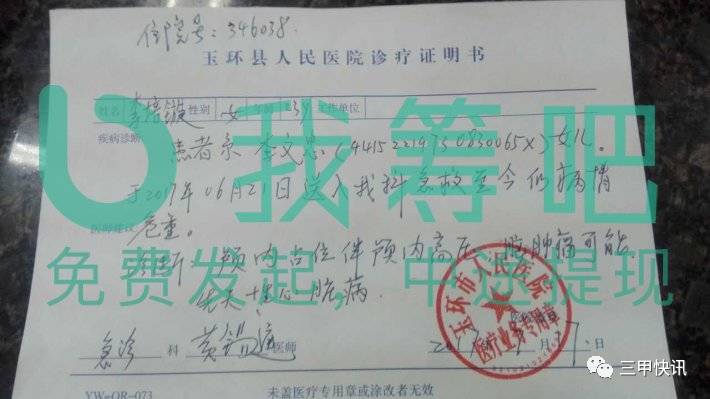 住院号：346038.
玉环县人民医院诊疗证明书
姓名 李培 性别 女 年龄 工作单位
疾病诊断
患者系 李文忠 女儿。
于2017年06月21日送入我科急救至今仍病情
医师建议
危重。
诊断：颅内占位伴颅内高压，脑肿瘤可能
先天性心脏病.
急诊 科 医师
玉环市人民医院
医疗业务专用章
YW-QR-073 未盖医疗专用章或涂改者无效
我筹吧
免费发起，中途提现
三甲快讯